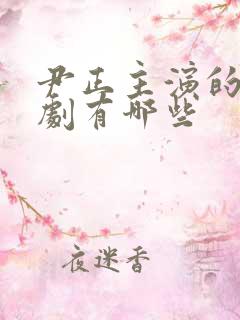 尹正主演的
劇有哪些
夜迷香